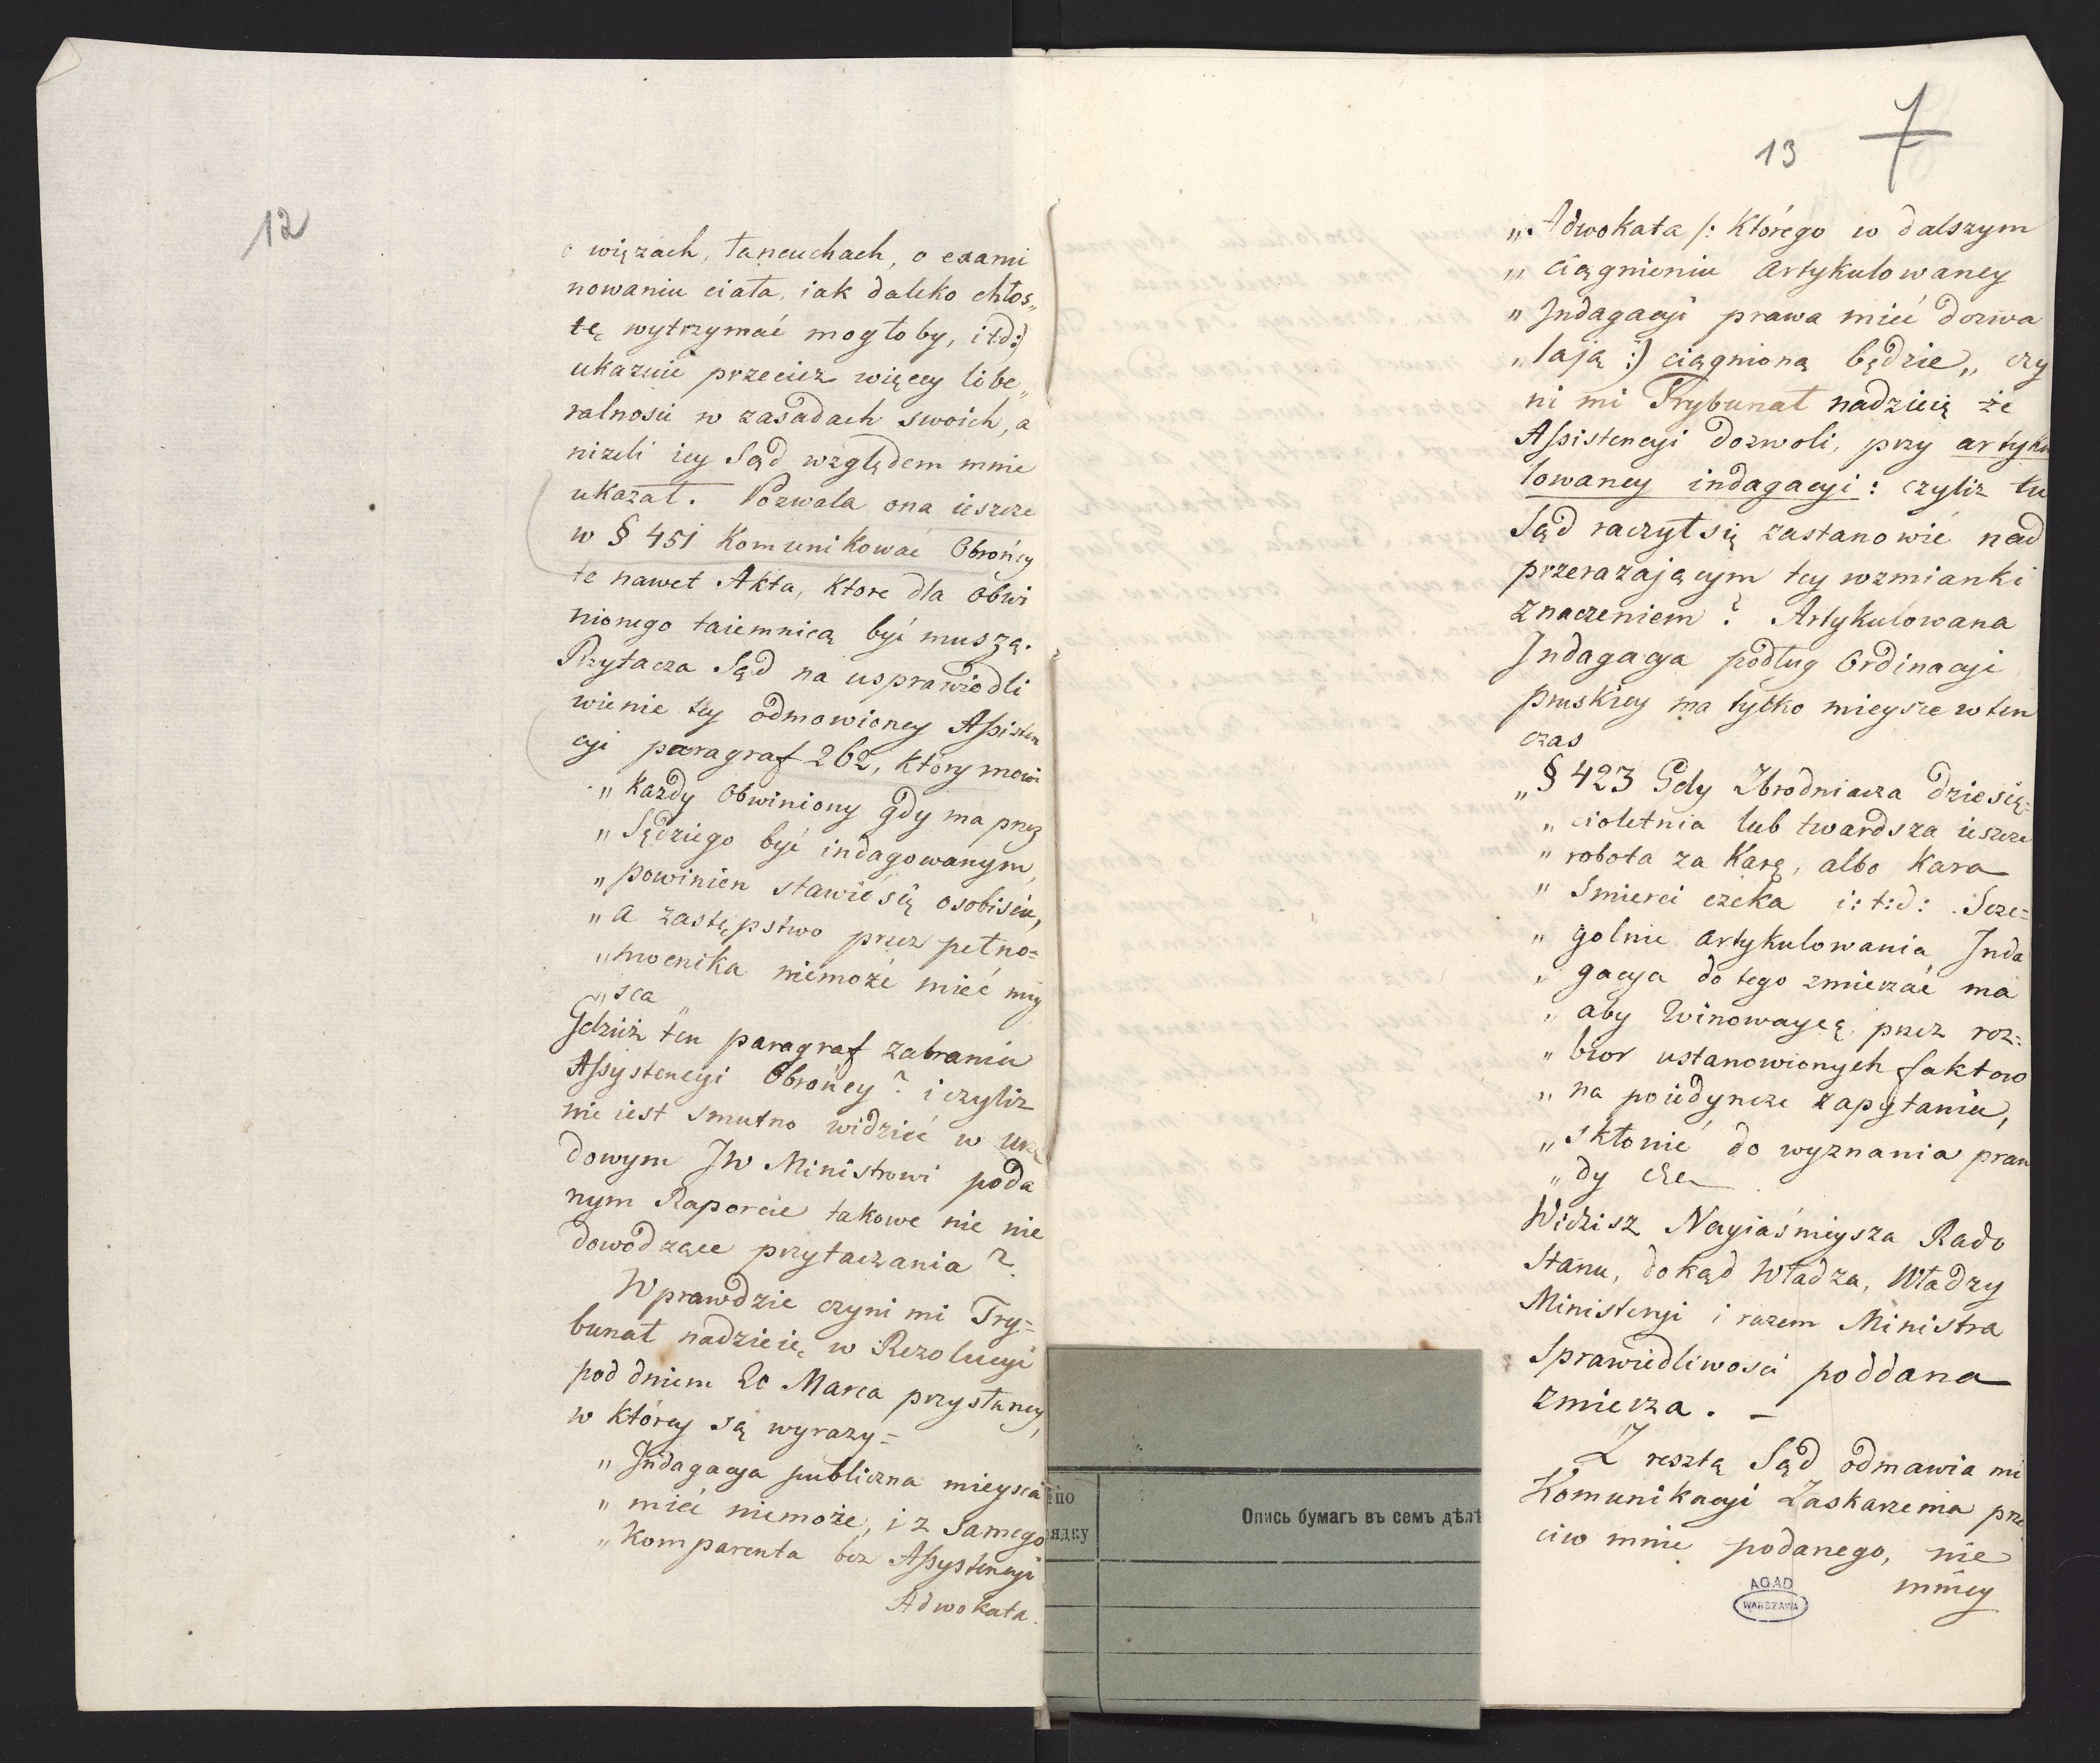 12
o więzach, łancuchach, o exami
nowaniu ciała, iak daleko chłos„
tę wytrzymać mogłoby, itd:)
ukazuie przecież więcey libe„
ralnosci w zasadach swoich, a
nizeli iey Sąd względem mnie
ukazał. Pozwala ona ieszcze
w § 451 Komunikować Obrońcy
te nawet Akta, ktore dla obwi
nionego taiemnicą być muszą.
Przytacza Sąd na usprawiedli
wienie tey odmowioney Assisten
cyi paragraf 262, ktory mowi
„ Każdy Obwiniony gdy ma przez
„ Sędziego być indagowanym,
„ powinien stawić się osobiscie,
„ a zastępstwo przez pełno=
„ mocnika niemoże mieć miey
„ sca „
Gdzież ten paragraf zabrania
Assystencyi Obrońcy? i czyliz
nie iest smutno widzieć w urzę
dowym JW Ministrowi poda
nym Raporcie takowe nic nie
dowodzące przytaczania?
Wprawdzie czyni mi Try=
bunał nadzieię w Rezolucyi
pod dniem 20 Marca przysłaney,
w którey są wyrazy=
„ Indagacya publiczna mieysca
„ mieć niemoże, i z samego
„ Komparenta bez Assystencyi
Adwokata
13
7
„ Adwokata /: Którego w dalszym
„ ciągnieniu artykulowaney
„ Indagacyi prawa mieć dozwa
„ lają :) ciągnioną będzie „ czy
ni mi Trybunał nadzieię że
Assistencyi dozwoli, przy artyku
lowaney indagacyi: czyliz tu
Sąd raczył się zastanowić nad
przerazającym tey wzmianki
znaczeniem? Artykulowana
Indagacya podług Ordinacyi
pruskiey ma tylko mieysce w ten
czas
„ § 423 Gdy Zbrodniarza dziesię=
„ cioletnia lub twardsza ieszcze
„ robota za Karę, albo Kara
„ Smierci czeka i: t: d: Szcze=
„ golnie artykulowania Inda
„ gacya do tego zmierzać ma
„ aby Winowaycę przez roz=
„ bior ustanowionych faktow
„ na poiedyncze zapytania,
„ skłonić do wyznania praw
„ dy
Widzisz Nayiaśnieysza Rado
Stanu, dokąd Władza, Władzy
Ministeryi i razem Ministra
Sprawiedliwosci poddana
zmierza. –
Z resztą Sąd odmawia mi
Komunikacyi Zaskarzenia prze
ciw mnie podanego, nie
mniey
AGAD
WARSZAWA
по
рядку
Опись бумагъ въ семъ дѣлѣ